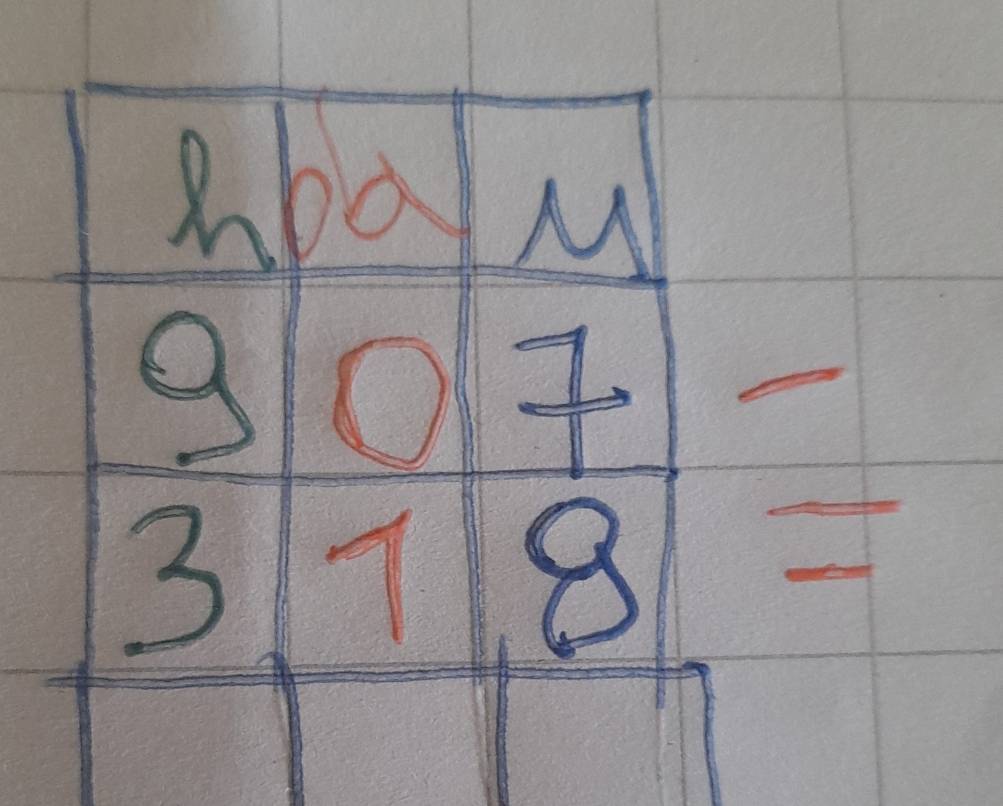 h da u
9 0 7 -
3 1 8 =